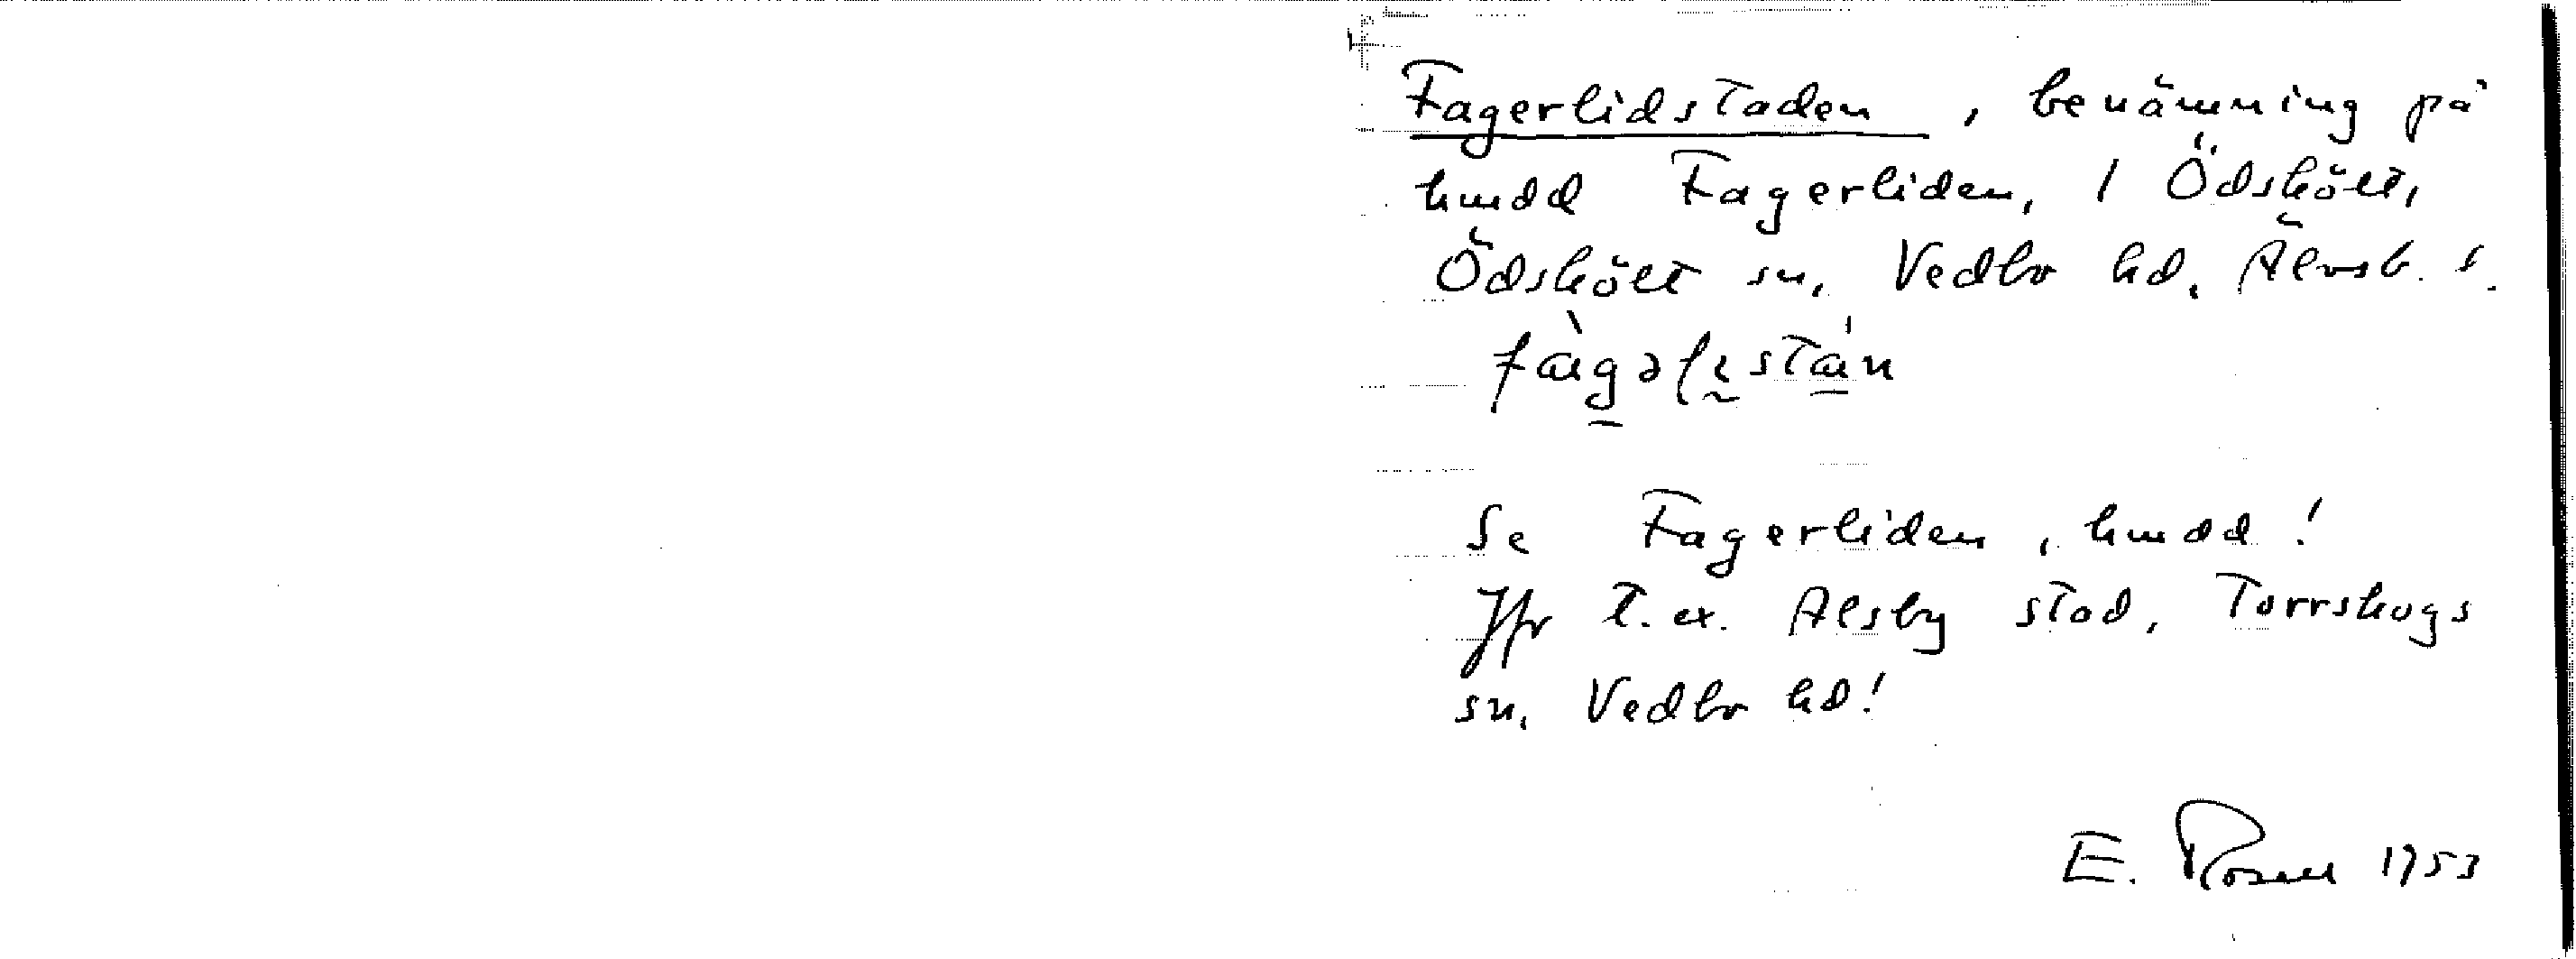 Fagerlidstaden, benämning på
hmdd Fagerliden, 1 Ödskölt,
Ödskölt sn, Vedbo hd, Älvsb. l.
Se Fagerliden, hmdd!
Jfr t. ex. Alsby stad, Torrskogs
sn, Vedbo hd!
E. Rosen 1953